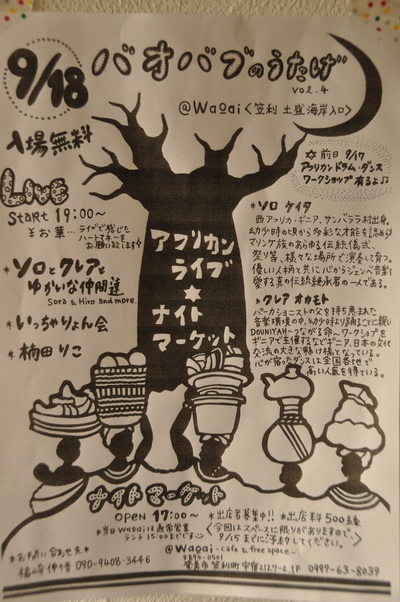 9/18
バオバブのうたげ
vol.4
@Wagai〈笠利 土盛海岸入口〉
入場無料
☆前日 9/17
アフリカンドラム・ダンス
ワークショップ 有るよ♪
LIVE
START 19:00〜
¥お華… ライブで感じた
ハートマネーを
お願い致します
アフリカン
ライブ
★
ナイト
マーケット
*ソロとクレアと
ゆかいな仲間達
Sora & Hiro and more.
*いっちゃりょん会
*楠田りこ
*ソロ ケイタ
西アフリカ・ギニア、サンバララ村出身。
幼少時の頃から多彩な才能を認め
マリンケ族のあらゆる伝統儀式、
祭り等、様々な場所で演奏して育つ。
優しい人柄と共に心からジェンベ音楽を
愛する真の伝統継承者の一人である。
*クレア オカモト
パーカショニストの父を持ち恵まれた
音楽環境の中、幼少時より踊ることに親しむ
DUNUNYAH〜つながる命〜ワークショップを
ギニアで主催するなどギニア、日本の文化
交流の大きな架け橋となっている。
心が宿ったダンスは全国各地で
高い人気を得ている。
ナイトマーケット
OPEN 17:00〜
*出店者募集中!! *出店料 500
*当日Wagaiは通常営業
ランチ 15:00までです
〈今回はスペースに限りがありますので、
9/15までに予約してください。〉
*お問い合わせ先*
090-9408-3446
@Wagai -cafe & free space-
〒894-0501
奄美市笠利町宇宿2127-2 1F 0997-63-8039